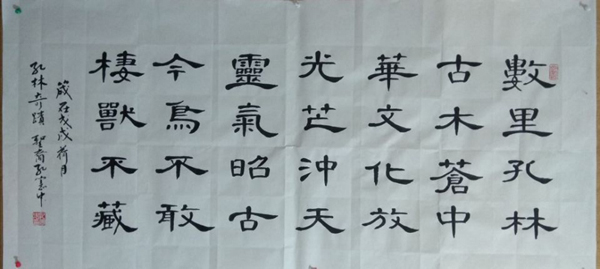 數里孔林
古木蒼中
華文化放
光芒沖天
靈氣昭古
今鳥不敢
棲獸不藏
歲在戊戌荷月
孔林奇蹟聖裔孔憲中